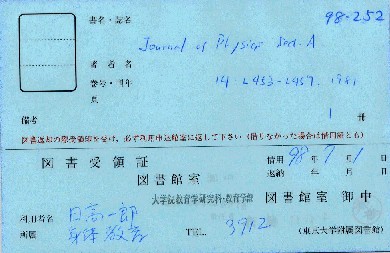 98-252
書名・誌名
Journal of Physics Sect. A
著者名
巻号・刊年
14 L453-L457. 1981
頁
備考
1 冊
図書返却の際受領印を受け、必ず利用申込館室に返して下さい(借しなかった場合は借用証とも)
図書受領証
借用 98年 7月 1日
図書館室
返納 年 月 日
大学院教育学研究科・教育学部
図書館室 御中
利用者名 日高一郎
所属 身体教育
TEL. 3912
(東京大学附属図書館)